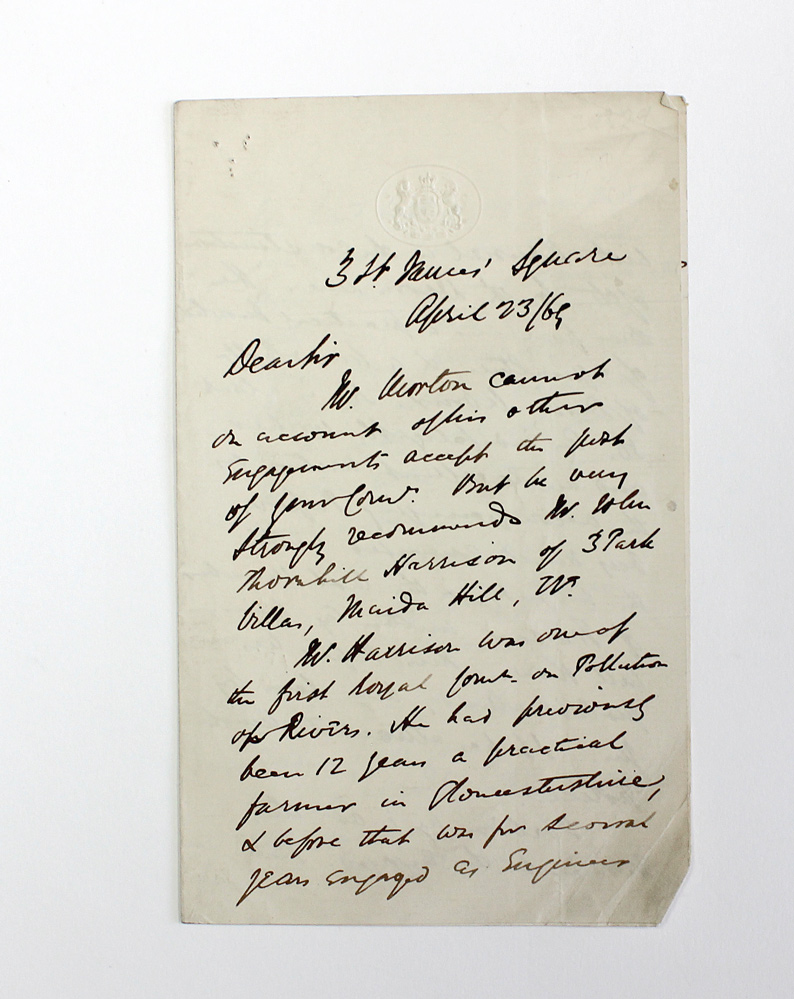 3 St. James' Square
April 23/69
Dear Sir
Mr. Morton cannot
on account of his other
Engagements accept the post
of your Comee. But he very
strongly recommends Mr. John
Thornhill Harrison of 3 Park
Villas, Maida Hill, W.
Mr. Harrison was one of
the first Royal Comn. on Pollution
of Rivers. He had previously
been 12 years a practical
farmer in Gloucestershire,
& before that was for several
years engaged as Engineer